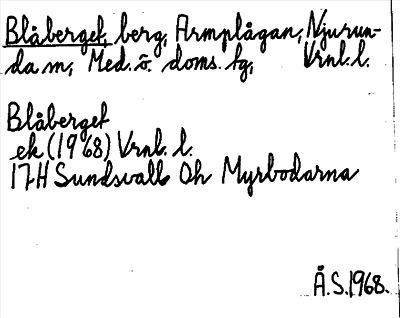 Blåberget, berg, Armplågan, Njurun-
da sn, Med. ö. doms. tg, Vrnl. l.
Blåberget
ek (1968) Vrnl. l.
17H Sundsvall Oh Myrbodarna
Å.S. 1968.